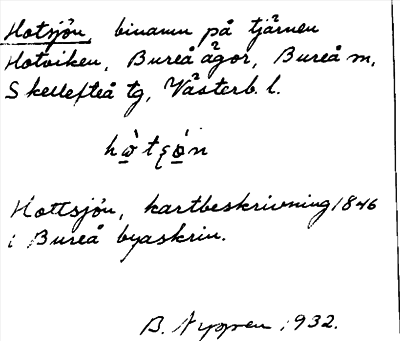 Hotsjön, binamn på tjärnen
Hotviken, Bureå ägor, Bureå m,
Skellefteå tg, Västerb. l.
Hottsjön, kartbeskrivning 1846
i Bureå byaskrin.
B. Nyppen 1932.